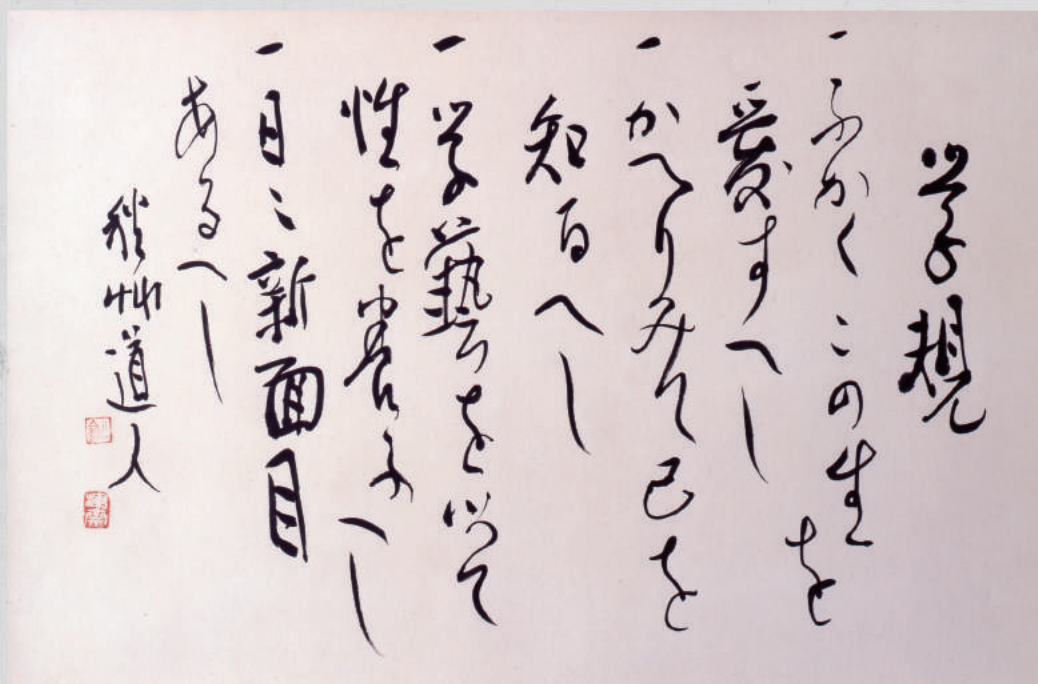 学規
一 ふかくこの生を
愛すへし
一 かへりみて己を
知るへし
一 学藝を以て
性を養ふへし
一 日々新面目
あるへし
秋艸道人